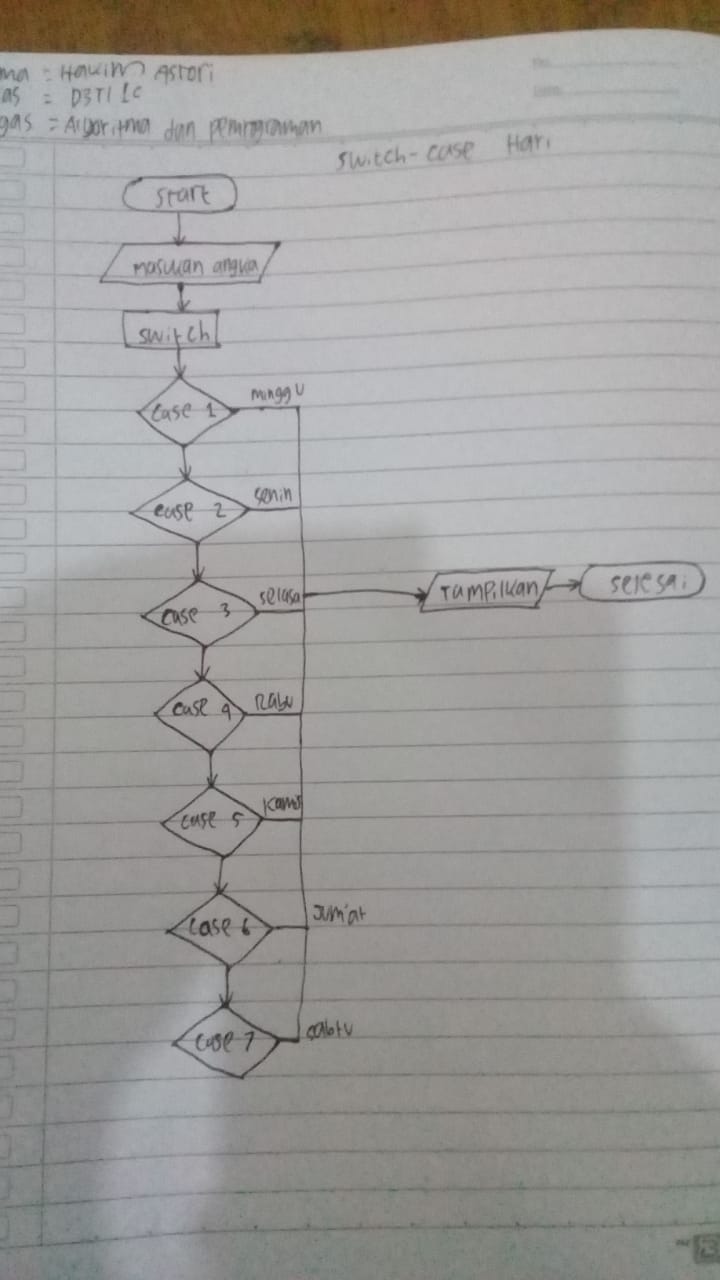 ma = Hakim Astori
as = D3TI 1C
gas = Algoritma dan pemrograman
Switch-case Hari
Start
masukan angka
switch
case 1
minggu
case 2
senin
case 3
selasa
Tampilkan
selesai
case 4
Rabu
case 5
Kamis
case 6
Jum'at
case 7
sabtu